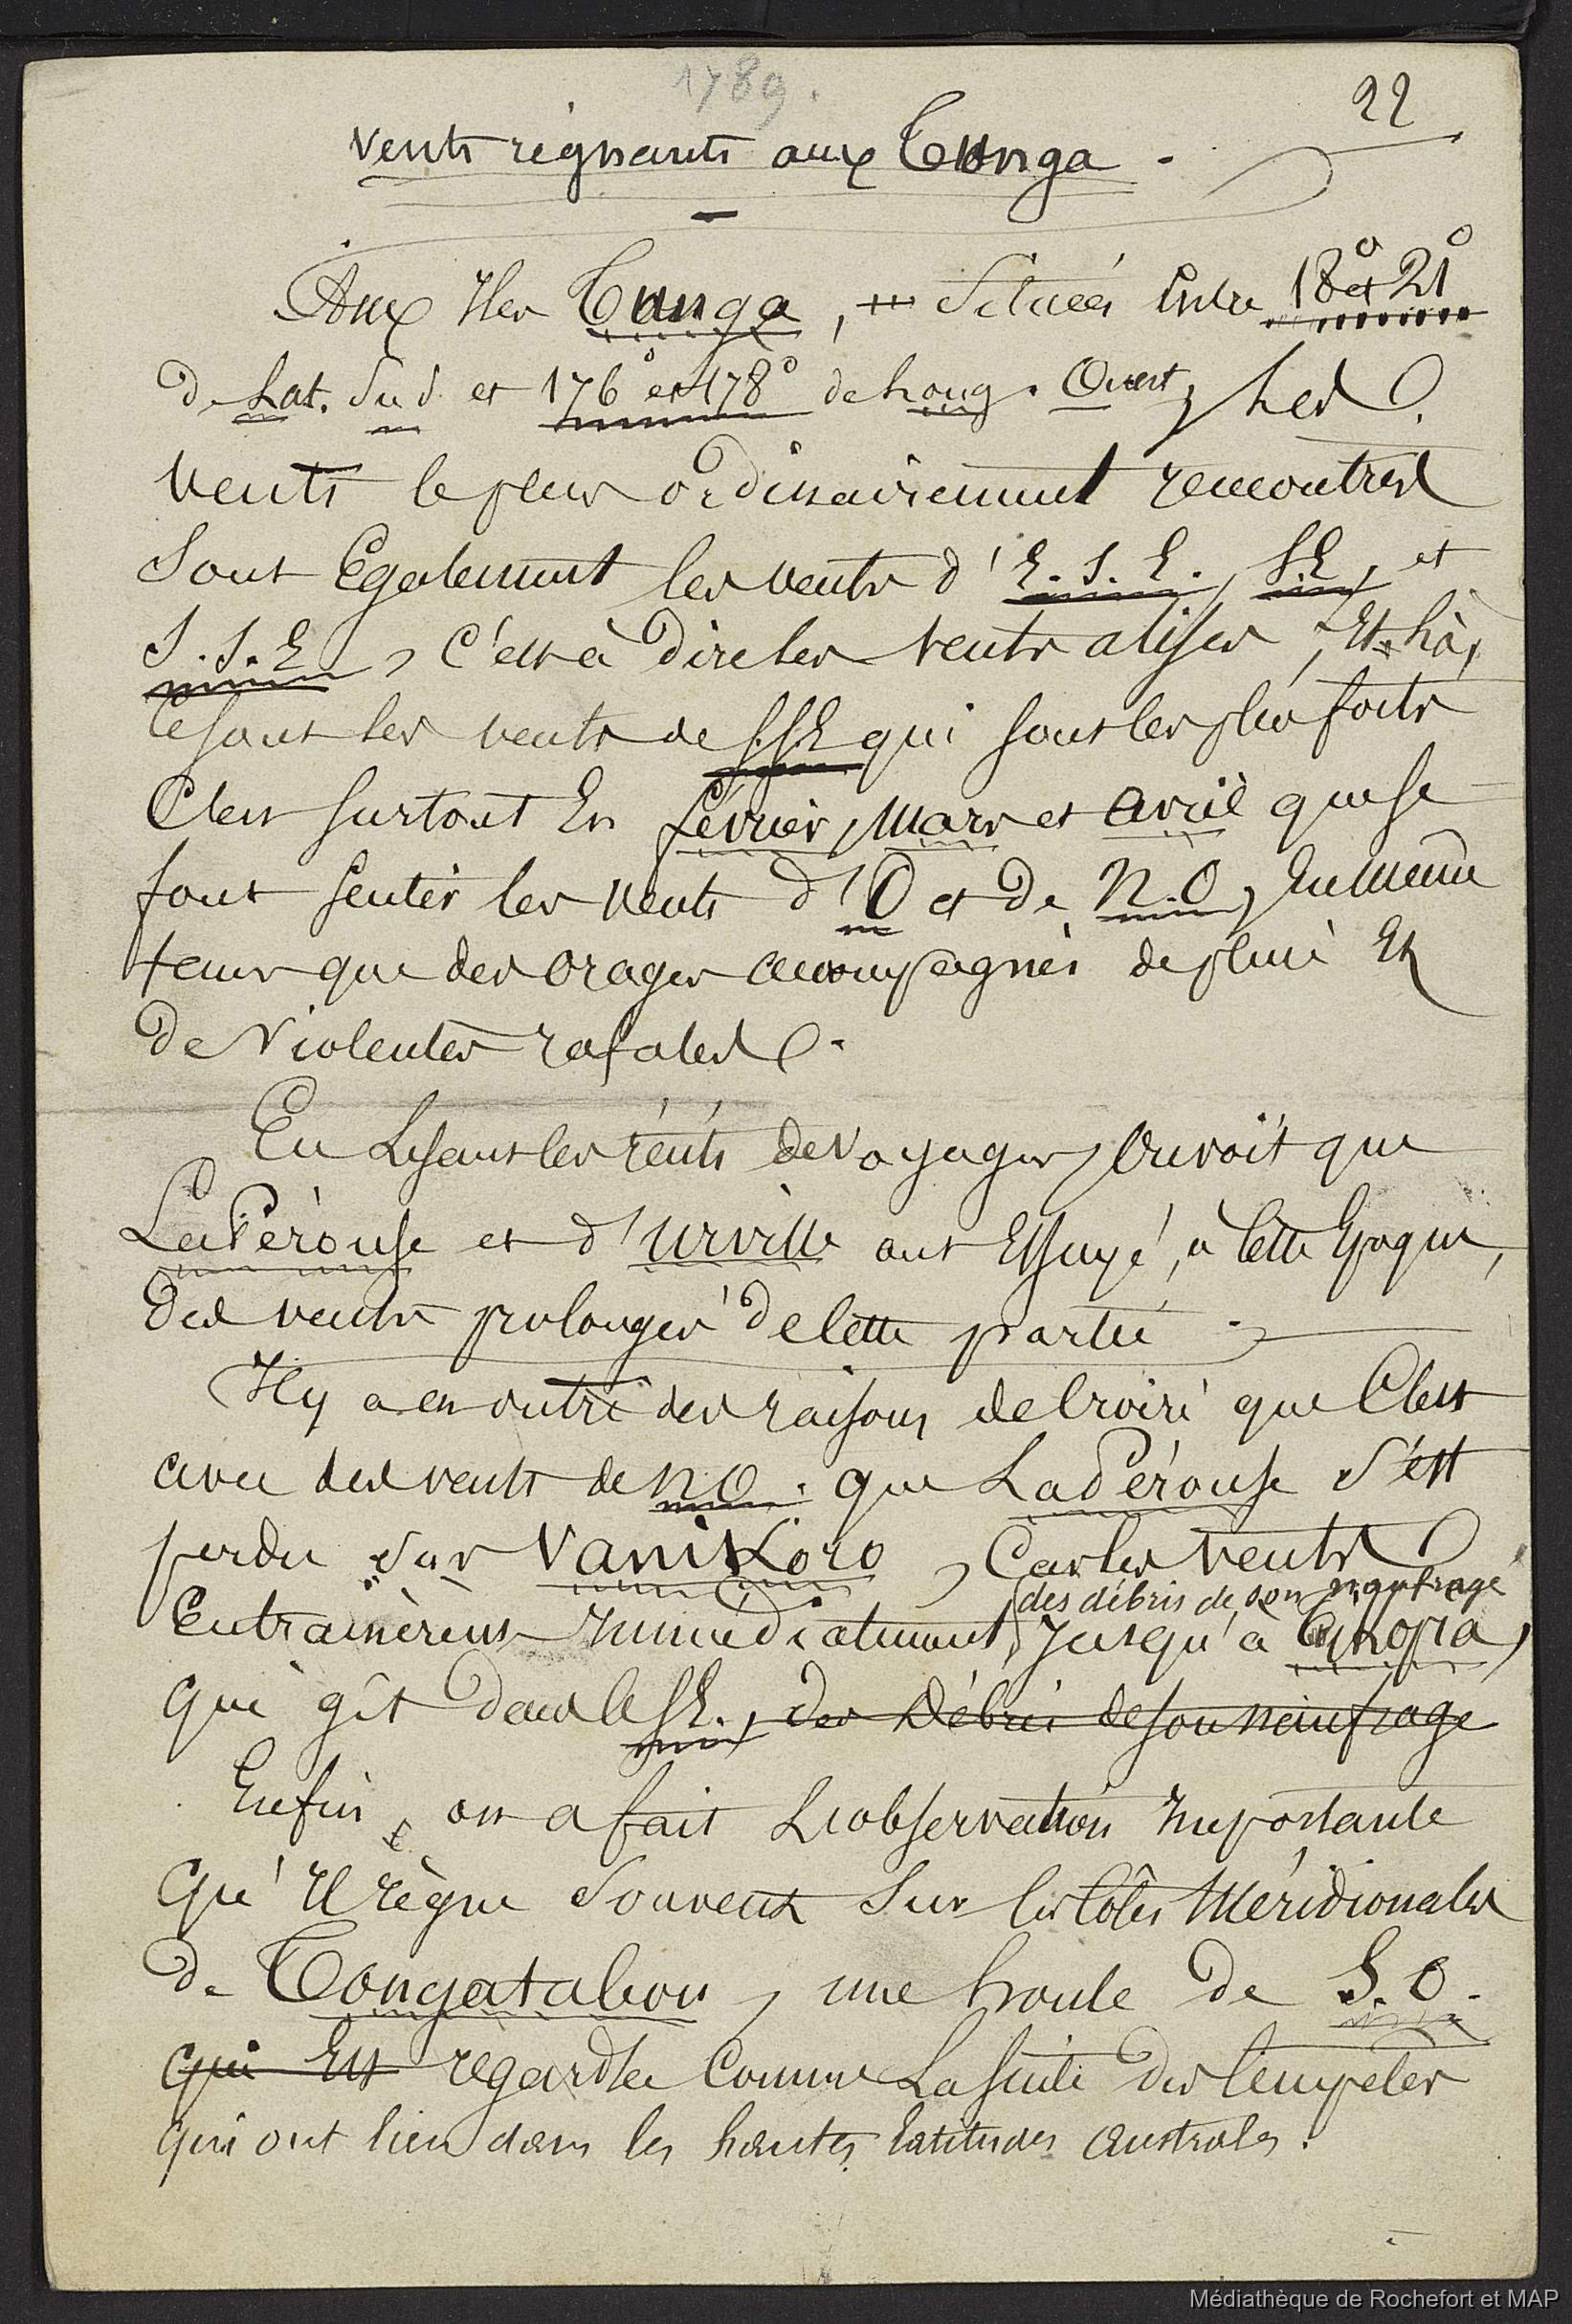 1789.
22
Vents régnants aux Tunga.
Aux Iles Tunga, Situées Entre 18° et 21°
de Lat. Sud et 176° et 178° de Long. Ouest, Les
Vents le plus ordinairement rencontrés
Sont Egalement les vents d'E.S.E., S.E, et
S.S.E, C'est à dire les Vents alises, Et Là,
Ce sont les vents de S.S.E qui sont les plus forts
C'est surtout En février, Mars et avril que se
font sentir les Vents d'O et de N.O, En même
tems que des orages accompagnés de pluie Et
de Violentes rafales.
En Lisant les récits de Voyages, On voit que
La Pérouse et d'Urville ont Essuyé, à Cette Epoque,
Des vents prolongés de Cette partie.
Il y a en outre des raisons de Croire que C'est
avec des vents de NO. que La Pérouse s'est
perdu sur Vanikoro, Car les vents
des débris de son naufrage
Entrainèrent Immédiatement Jusqu'à Tikopia,
qui gît dans le SE., des Débris de son naufrage
Enfin, on a fait L'observation Importante
Qu'Il règne Souvent Sur les Côtes Méridionales
de Tongatabou, une houle de S.O.
qui Est regardée Comme La suite des tempêtes
qui ont lieu dans les hautes latitudes australes.
Médiathèque de Rochefort et MAP